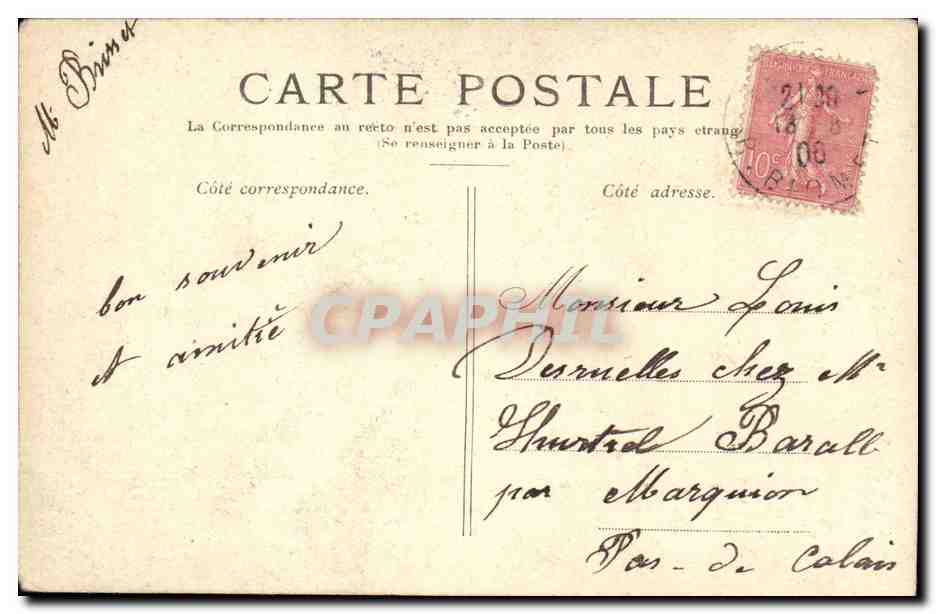 M. Brisset
CARTE POSTALE
La Correspondance au recto n'est pas acceptée par tous les pays etrang
(Se renseigner à la Poste)
Côté correspondance.
Côté adresse.
FRANÇAISE
10c
21 30
18 - 8
06
R. BLOMET
bon souvenir
et amitié
CPAPHIL
Monsieur Louis
Desruelles chez Mr
Thurtrel Baralle
par Marquion
Pas-de Calais